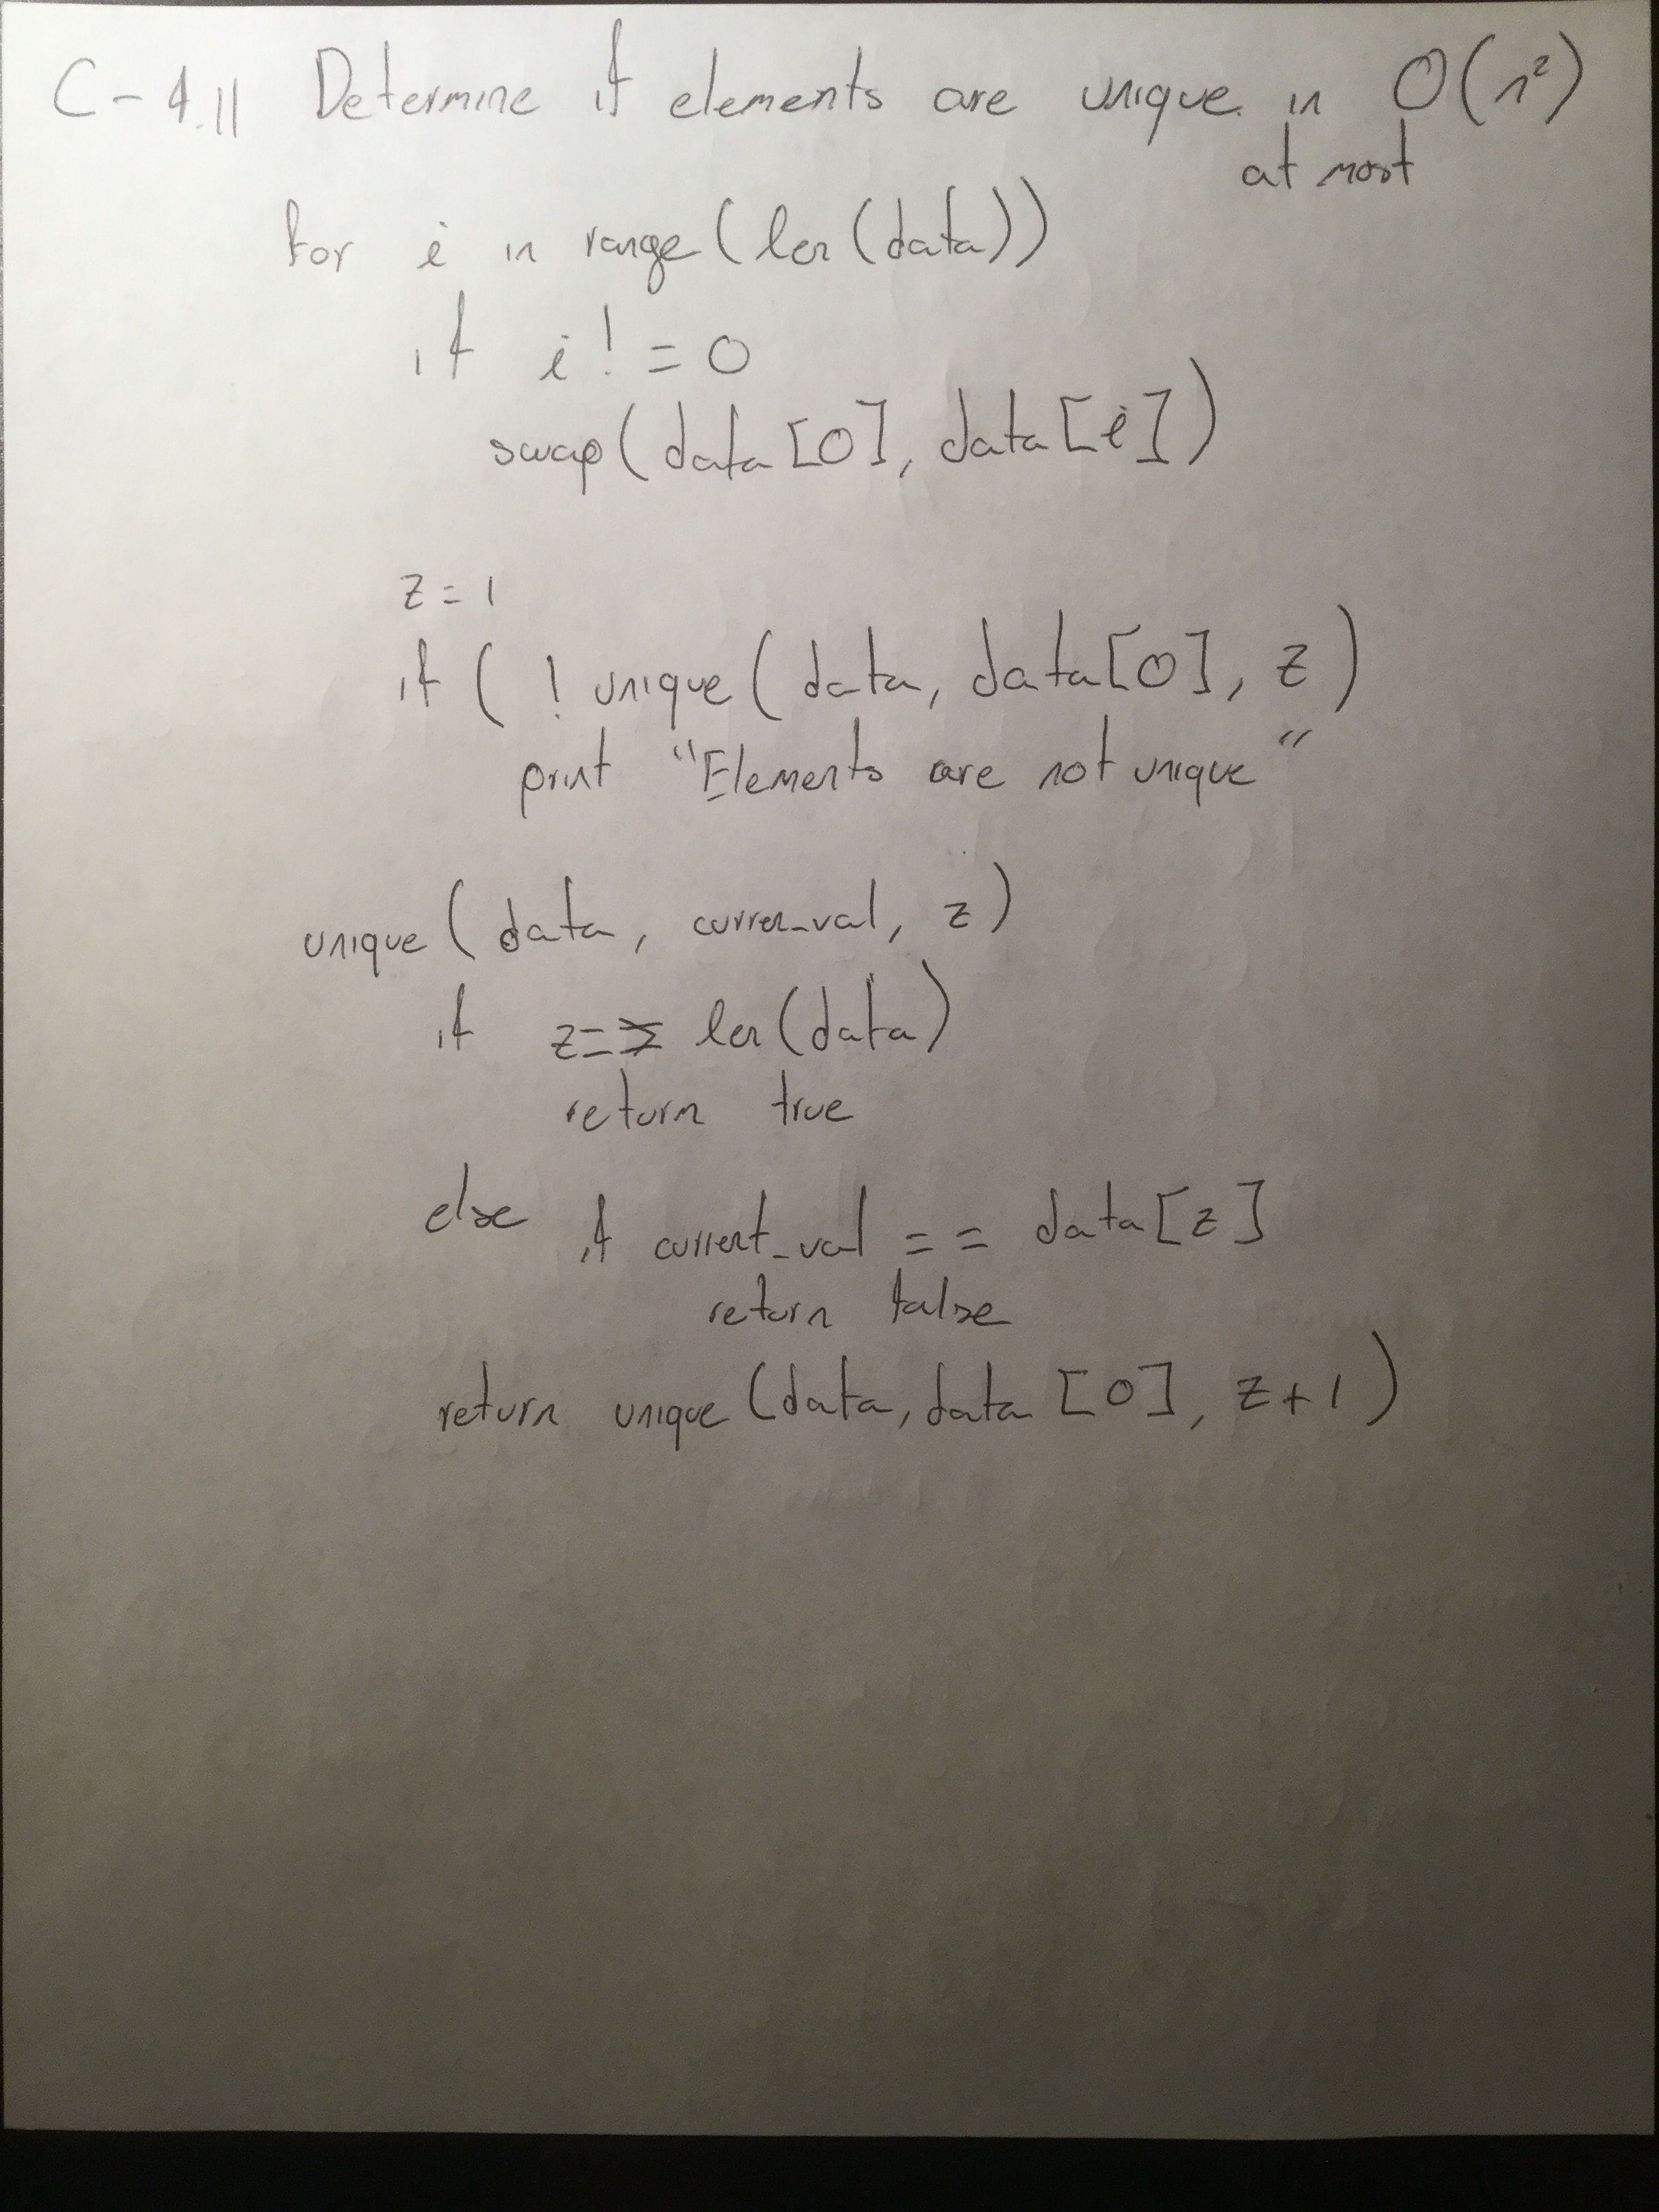 C-4.11 Determine if elements are unique in O(n²)
at most
for i in range(len(data))
if i != 0
swap(data[0], data[i])
z = 1
if ( ! unique(data, data[0], z)
print "Elements are not unique"
unique(data, curren_val, z)
if z == len(data)
return true
else if current_val == data[z]
return false
return unique(data, data[0], z+1)